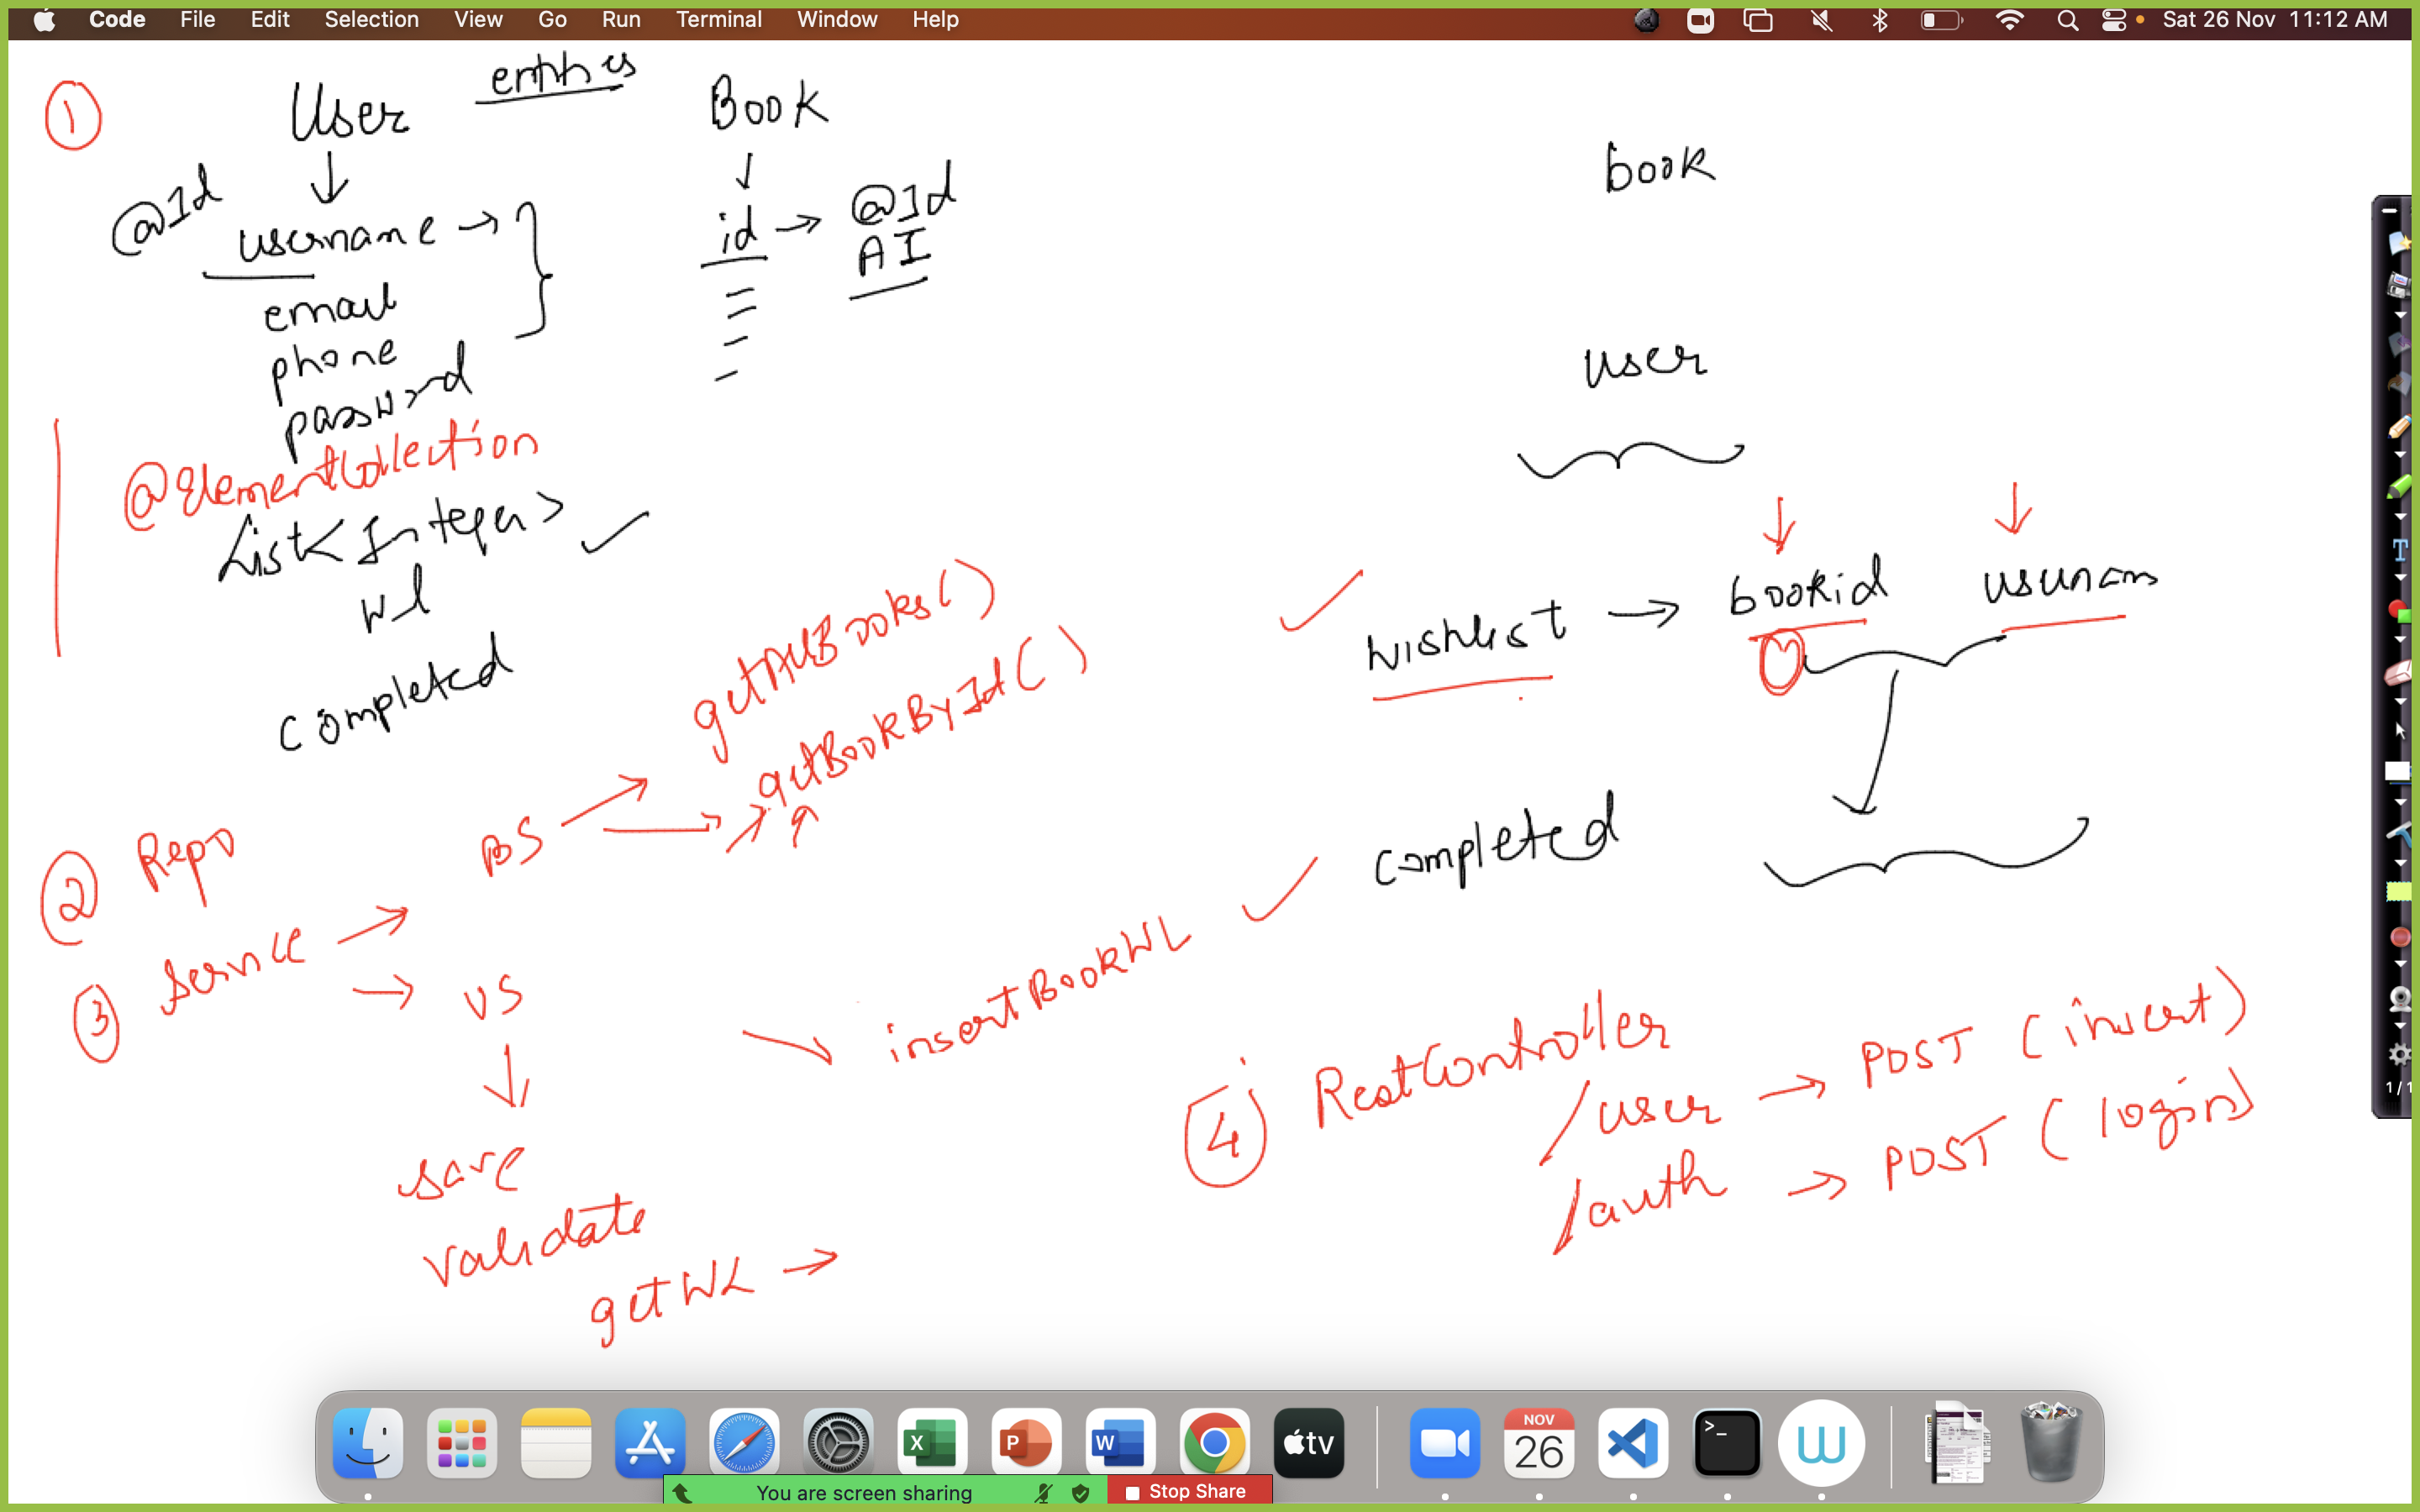 Code File Edit Selection View Go Run Terminal Window Help Sat 26 Nov 11:12 AM
1
User entities Book
@Id username → id → @Id
AI
email
phone
password
@ElementCollection
List<Integer>
wl
completed
book
user
wishlist → bookid
completed
2 Repo
BS
getAllBooks()
getBookById()
3 Service
US
save
validate
getWL →
insertBookWL
4 RestController
/user → POST (insert)
/auth → POST (login)
T
1/1
X P W tv
NOV
26
>_
W
You are screen sharing Stop Share